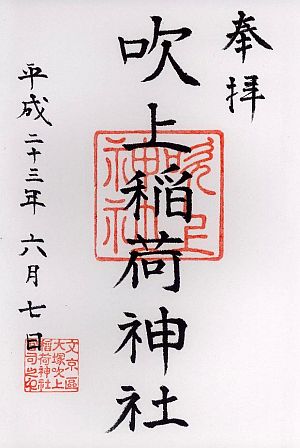 奉拝
吹上稲荷神社
平成二十三年六月七日
吹上
神社
文京區
大塚吹上
稲荷神社
宮司之印